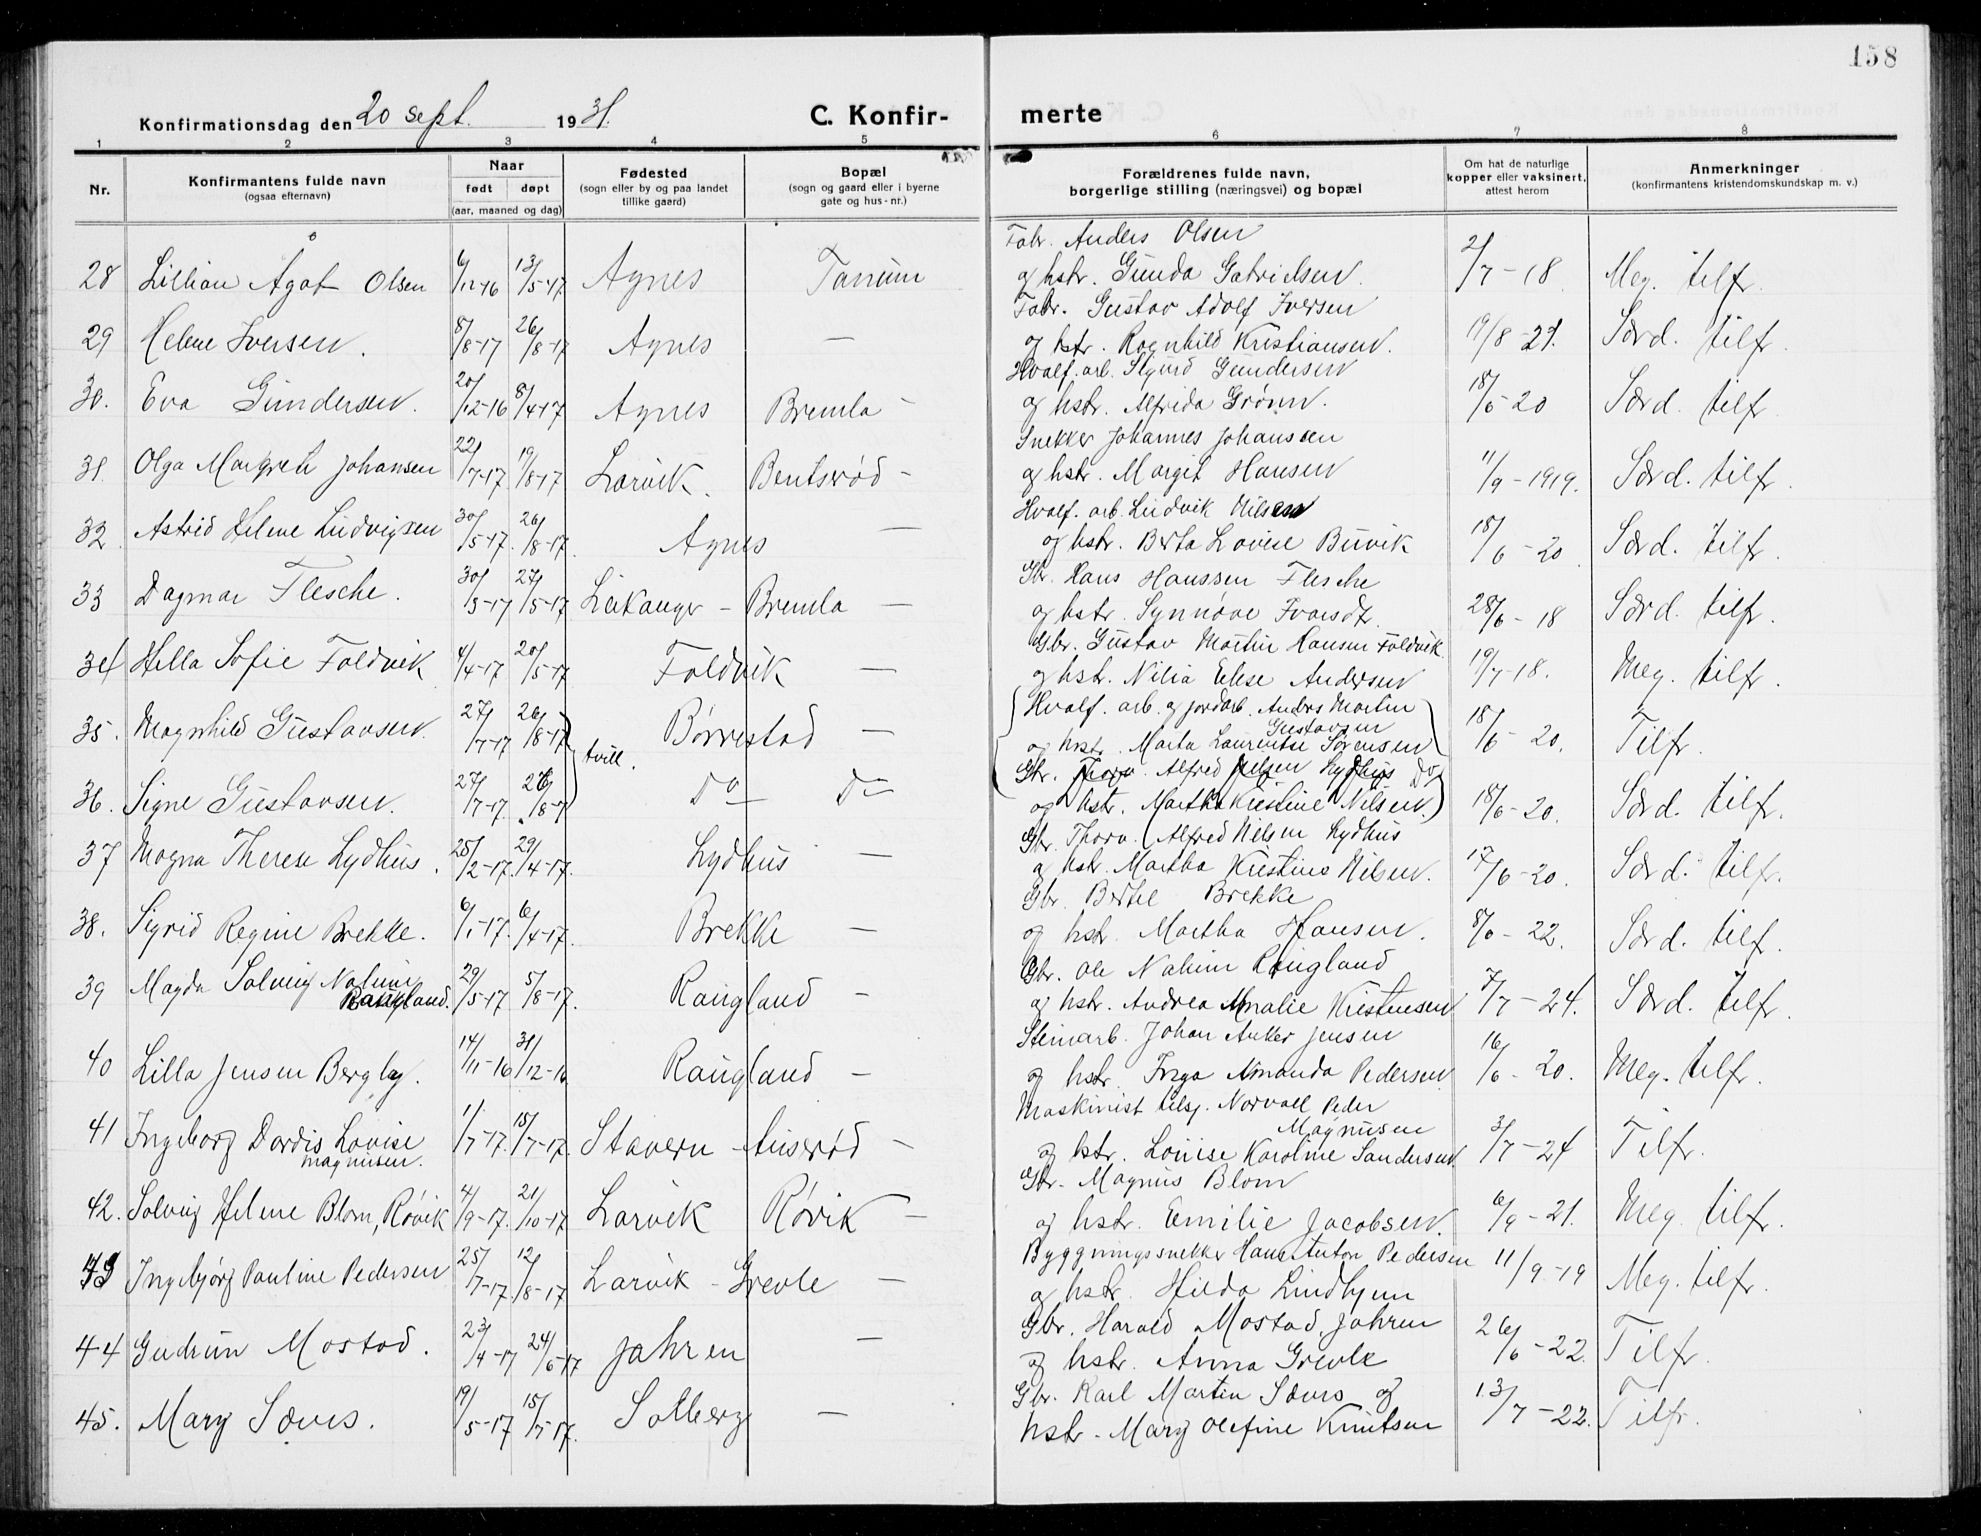 158
Konfirmationsdag den 20 sept. 1931.
C. Konfir-
merte
1 2 3 4 5 6 7 8
Nr.
Konfirmantens fulde navn
(ogsaa efternavn)
Naar
født døpt
(aar, maaned og dag)
Fødested
(sogn eller by og paa landet
tillike gaard)
Bopæl
(sogn og gaard eller i byerne
gate og hus-nr.)
Forældrenes fulde navn,
borgerlige stilling (næringsvei) og bopæl
Om hat de naturlige
kopper eller vaksinert,
attest herom
Anmerkninger
(konfirmantens kristendomskundskap m. v.)
Fabr. Anders Olsen
28 Lillian Ågot Olsen 6/12-16 13/5-17 Agnes Tanum og hstr. Gunda Gabrielsen. 2/7-18 Meg. tilfr.
Fabr. Gustav Adolf Iversen
29 Helene Iversen. 8/8-17 26/8-17 Agnes — og hstr. Ragnhild Kristiansen. 19/8-21. Særd. tilfr.
Hvalf. arb. Sigurd Gundersen
30. Eva Gundersen. 20/12-16 8/4-17 Agnes Bremla - og hstr. Alfrida Grønn. 18/6-20 Særd. tilfr.
Snekker Johannes Johanssen
31. Olga Margreth Johansen 22/7-17 19/8-17 Larvik. Bentsrød - og hstr. Margit Hansen 11/9-1919. Særd. tilfr.
Hvalf. arb. Ludvik Nilsen
32. Astrid Helene Ludvigsen 30/5-17. 26/8-17. Agnes — og hstr. Berta Lovise Buvik 18/6-20 Særd. tilfr.
Gbr. Hans Hanssen Flesche
33 Dagmar Flesche. 30/3-17 27/5-17 Leikanger - Bremla — og hstr. Synnøve 28/6-18 Særd. tilfr.
Gbr. Gustav Martin Hansen Foldvik
34 Hella Sofie Foldvik 4/4-17 20/5-17 Foldvik — og hstr. Nilia Elise Andersen 19/7-18. Meg. tilfr.
Hvalf. arb. og jordarb. Anders Martin
Gustavsen
35. Magnhild Gustavsen. 27/7-17 26/8-17 tvill. Børrestad — og hstr. Marta Laurentse Sørensen 18/6-20. Tilfr.
Gbr. Thorv. Alfred Nilsen Lydhus do
36. Signe Gustavsen. 27/7-17. 26/8-17 do do og hstr. Martha Kristine Nilsen. 18/6-20. Særd. tilfr.
Gbr. Thorv. Alfred Nilsen Lydhus
37 Magna Therese Lydhus. 25/2-17. 29/4-17. Lydhus — og hstr. Martha Kristine Nilsen. 17/6-20. Særd. tilfr.
Gbr. Bertel Brekke
38. Sigrid Regine Brekke. 6/1-17. 6/4-17. Brekke — og hstr. Martha Hansen. 8/6-22. Særd. tilfr.
Gbr. Ole Nalum Raugland
39 Magda Solveig Nalum
Raugland. 29/5-17 5/8-17. Raugland — og hstr. Andrea Amalie Kristensen 7/7-24. Særd. tilfr.
Steinarb. Johan Anker Jensen
40 Lilla Jensen Bergby. 14/11-16 31/12-16 Raugland — og hstr. Inga Amanda Pedersen 16/6-20. Meg. tilfr.
Maskinist tilsj. Norvall Peder
Magnusen
41 Ingeborg Dordis Lovise
Magnusen. 1/7-17. 15/7-17. Stavern - Auserød - og hstr. Louise Karoline Sandersen 3/7-24 Tilfr.
Gbr. Magnus Blom
42. Solveig Helene Blom, Røvik 4/9-17. 21/10-17 Larvik Røvik — og hstr. Emilie Jacobsen. 6/9-21. Meg. tilfr.
Byggningssnekker Hans Anton Pedersen
43 Ingebjørg Pauline Pedersen 25/7-17. 12/8-17 Larvik - Grevle — og hstr. Hilda Lindhjem 11/9-19 Meg. tilfr.
Gbr. Harald Mostad, Jahren
44 Gudrun Mostad. 23/4-17 24/6-17 Jahren — og hstr. Anna Grevle 26/6-22. Tilfr.
Gbr. Karl Martin Sævs og
45. Mary Sævs. 19/5-17 15/7-17. Solberg — hstr. Mary Olefine Knutsen 13/7-22. Tilfr.